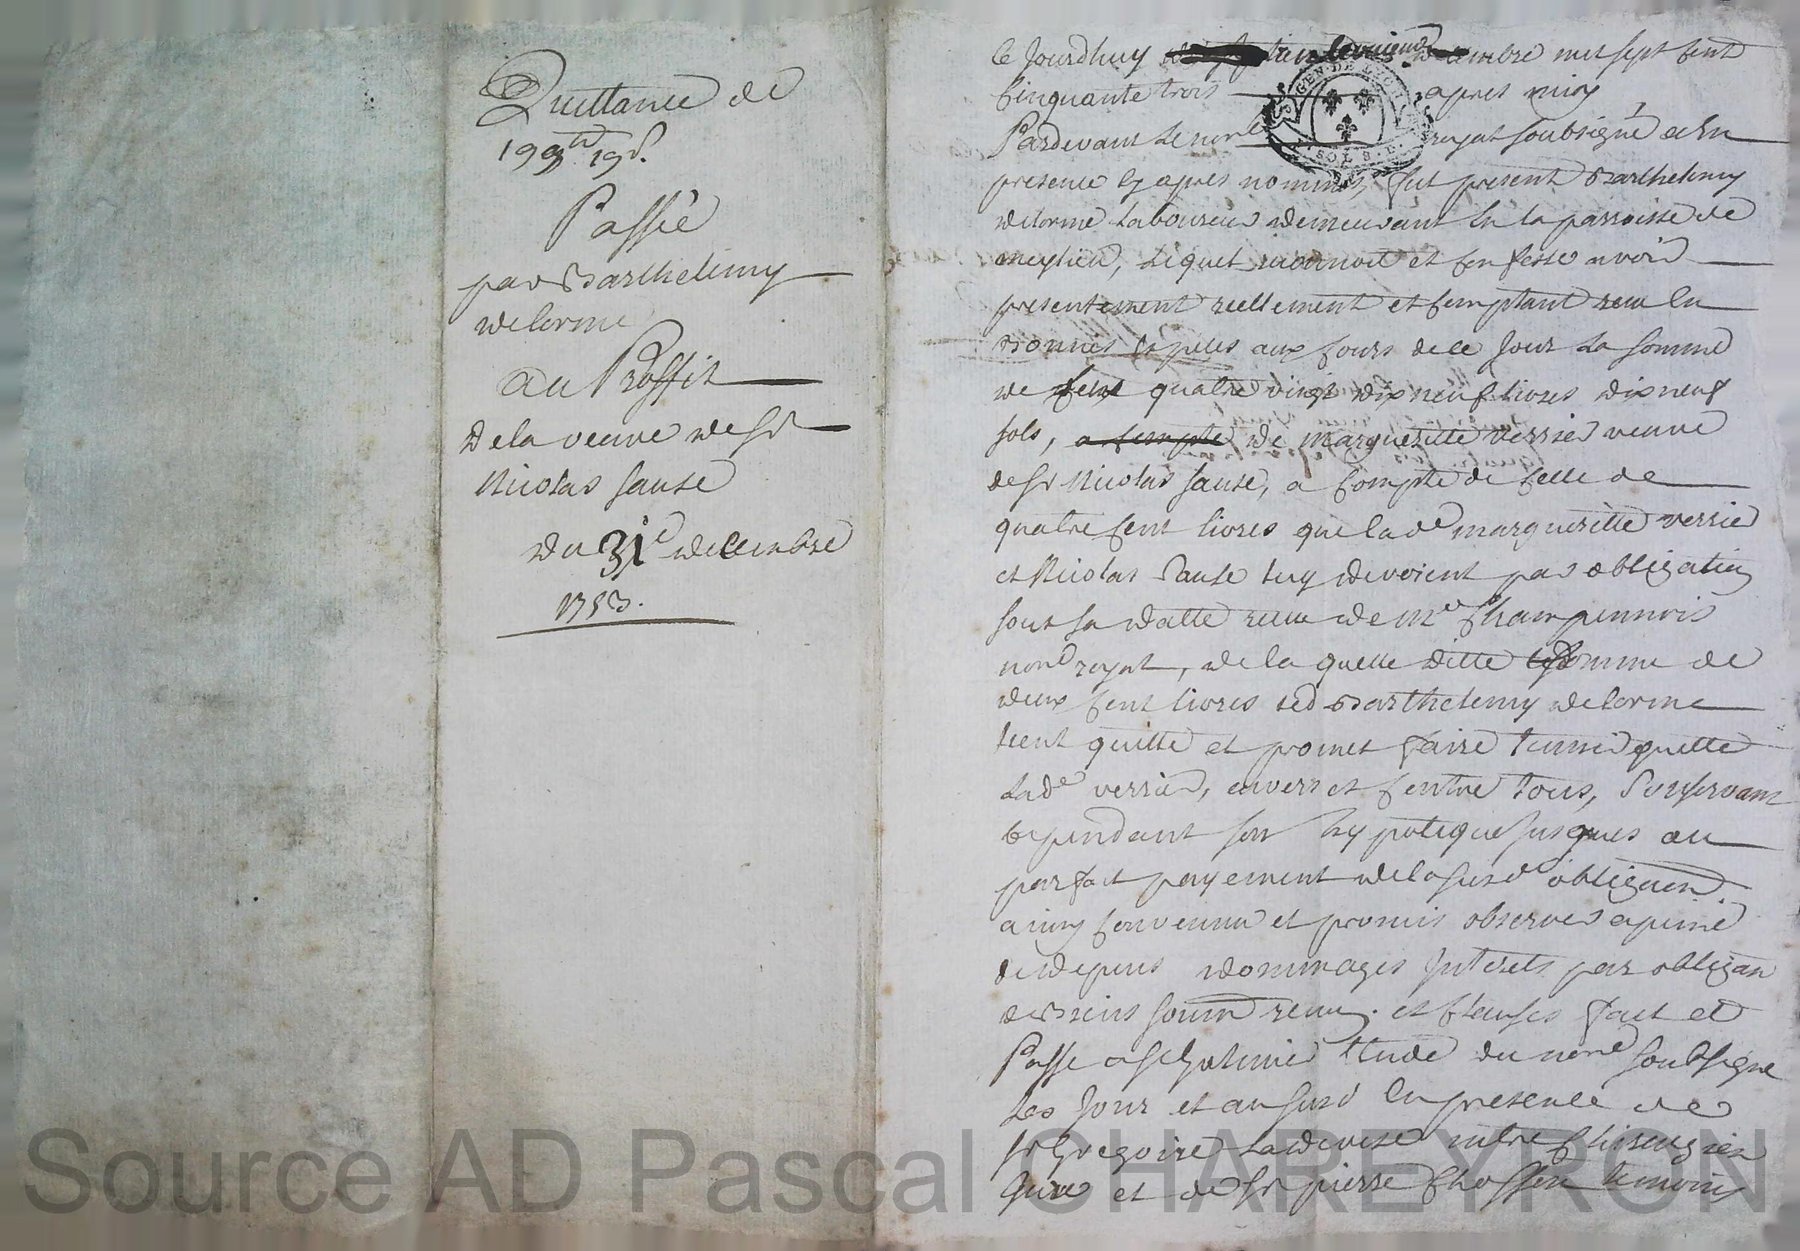 Quittance de
199 lt 19 s.
Passée
par Barthelemy
delorme
au Proffit
De la veuve de Sr
Nicolas sause
du 31e decembre
1753.
Ce Jourdhuy decembre mil sept cent
Cinquante trois apres midy
Pardevant Le nore royal soubsigné et En
presence cy apres nommés, fut present Barthelemy
delorme Laboureur demeurant En la parroisse de
meylieu, Lequel reconnoit et confesse avoir
presentement reellement et comptant receu En
Bonnes Especes aux cours de ce Jour La somme
de cent quatre vingt dix neuf livres dix neuf
sols, a compte de margueritte verrier veuve
de Sr Nicolas sause, a compte de celle de
quatre cent livres que la de margueritte verrier
et Nicolas sause luy devoient par obligation
sous sa datte receu de Me Champennois
nore royal, de la quelle ditte somme de
deux cent livres led Barthelemy delorme
tient quitte et promet faire tenir quitte
La de verrier, envers et contre tous, Conservant
cependant son hypoteque jusques au
parfait payement de la susd obligaon
ainsy convenu et promis observer a peine
de depens dommages Interets par obligaon
de Biens soumn renon. et clauses fait et
Passé a St Galmier Etude du nore soubsigné
Les Jour et an susd En presence de
Sr Gregoire Laderese mtre chirurgien
Juré et de Sr pierre temoins
GEN. DE LYON
SOLS
Source AD Pascal CHAREYRON